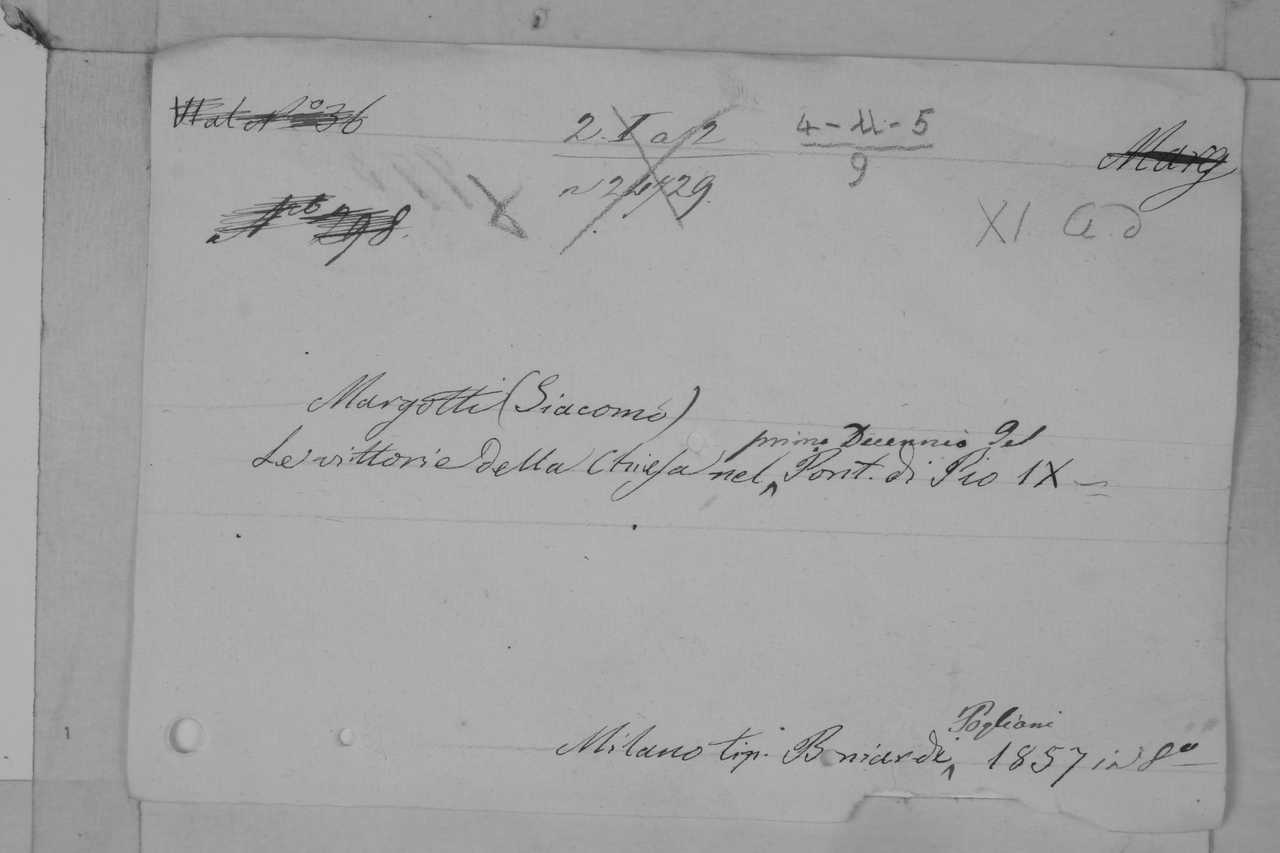 2. I a 2
4-11-5
9
Marg
n 2429.
298.
XI
Margotti (Giacomo)
Le vittorie della Chiesa nel primo Decennio del Pont. di Pio IX
Milano tip. Boniardi Pogliani 1857 in 8º
1